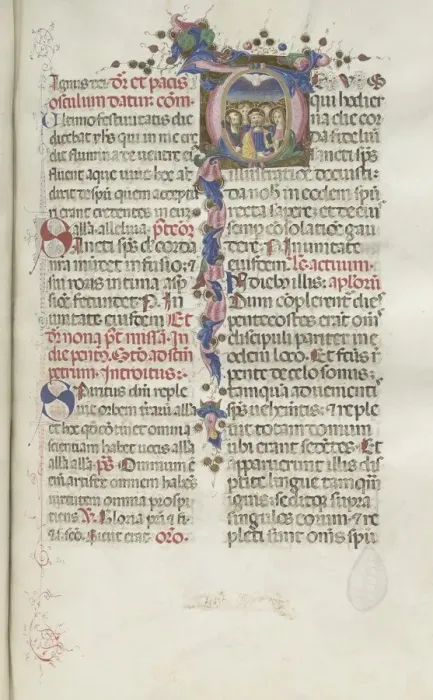 Agnus dei dr et pacis
osculum datur. com.
Ultimo festiuitatis die
dicebat yhs qui in me cre
dit flumina de uentre ei
fluent aque uiue hoc at
dixit de spu quem accepturi
erant credentes in eum
alla alleluia. p̄t cor
Sancti sp̄s dn̄e corda
nr̄a mūdet infusio; &
sui roris intima asp̄
sione fecundet. P. In
unitate eiusdem Et
dr nona p̄t missā. In
die penth. Stō ad sctm
petrum. Introitus:.
Spiritus dn̄i reple
uit orbem terrarū alla
et hoc qd cōtinet omnia
scientiam habet uocis alla
alla alla. ps Omnium e
omnem habēs
uirtutem omnia prospi
ciens. V. Gloria pr̄i & fi
& sc̄o. Sicut erat. oro.
DEUS
qui hodier
na die cor
da fideliū
sancti sp̄s
illustratiōe docuisti:
da nob in eodem spū
recta sapere; et de eiꝰ
semp̄ cōsolatiōe gau
dere. P. In unitate
eiusdem. Lc actuum.
In dieb illis: apl'orū
Dum cōplerent dies
pentecostes erāt oms
discipuli pariter in e
odem loco. Et fcūs ē
repente de celo sonus;
tamquā aduenienti
sp̄s uehemētis: & reple
uit totam domum
ubi erant sedētes. Et
apparuerunt illis dis
ptite lingue tamqm̄
ignis; seditqꝫ supra
singulos eorum: & re
pleti sunt oms spū